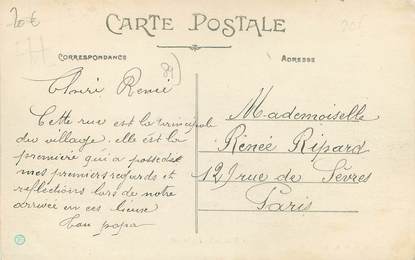 20€
CARTE POSTALE
CORRESPONDANCE
ADRESSE
89)
Chérie Renée
Cette rue est la principale
du village. elle est la
première qui a possédé
mes premiers regards et
réflections lors de notre
arrivée en ces lieux
Ton papa
Mademoiselle
Rénée Ripard
12 rue de Sèvres
Paris